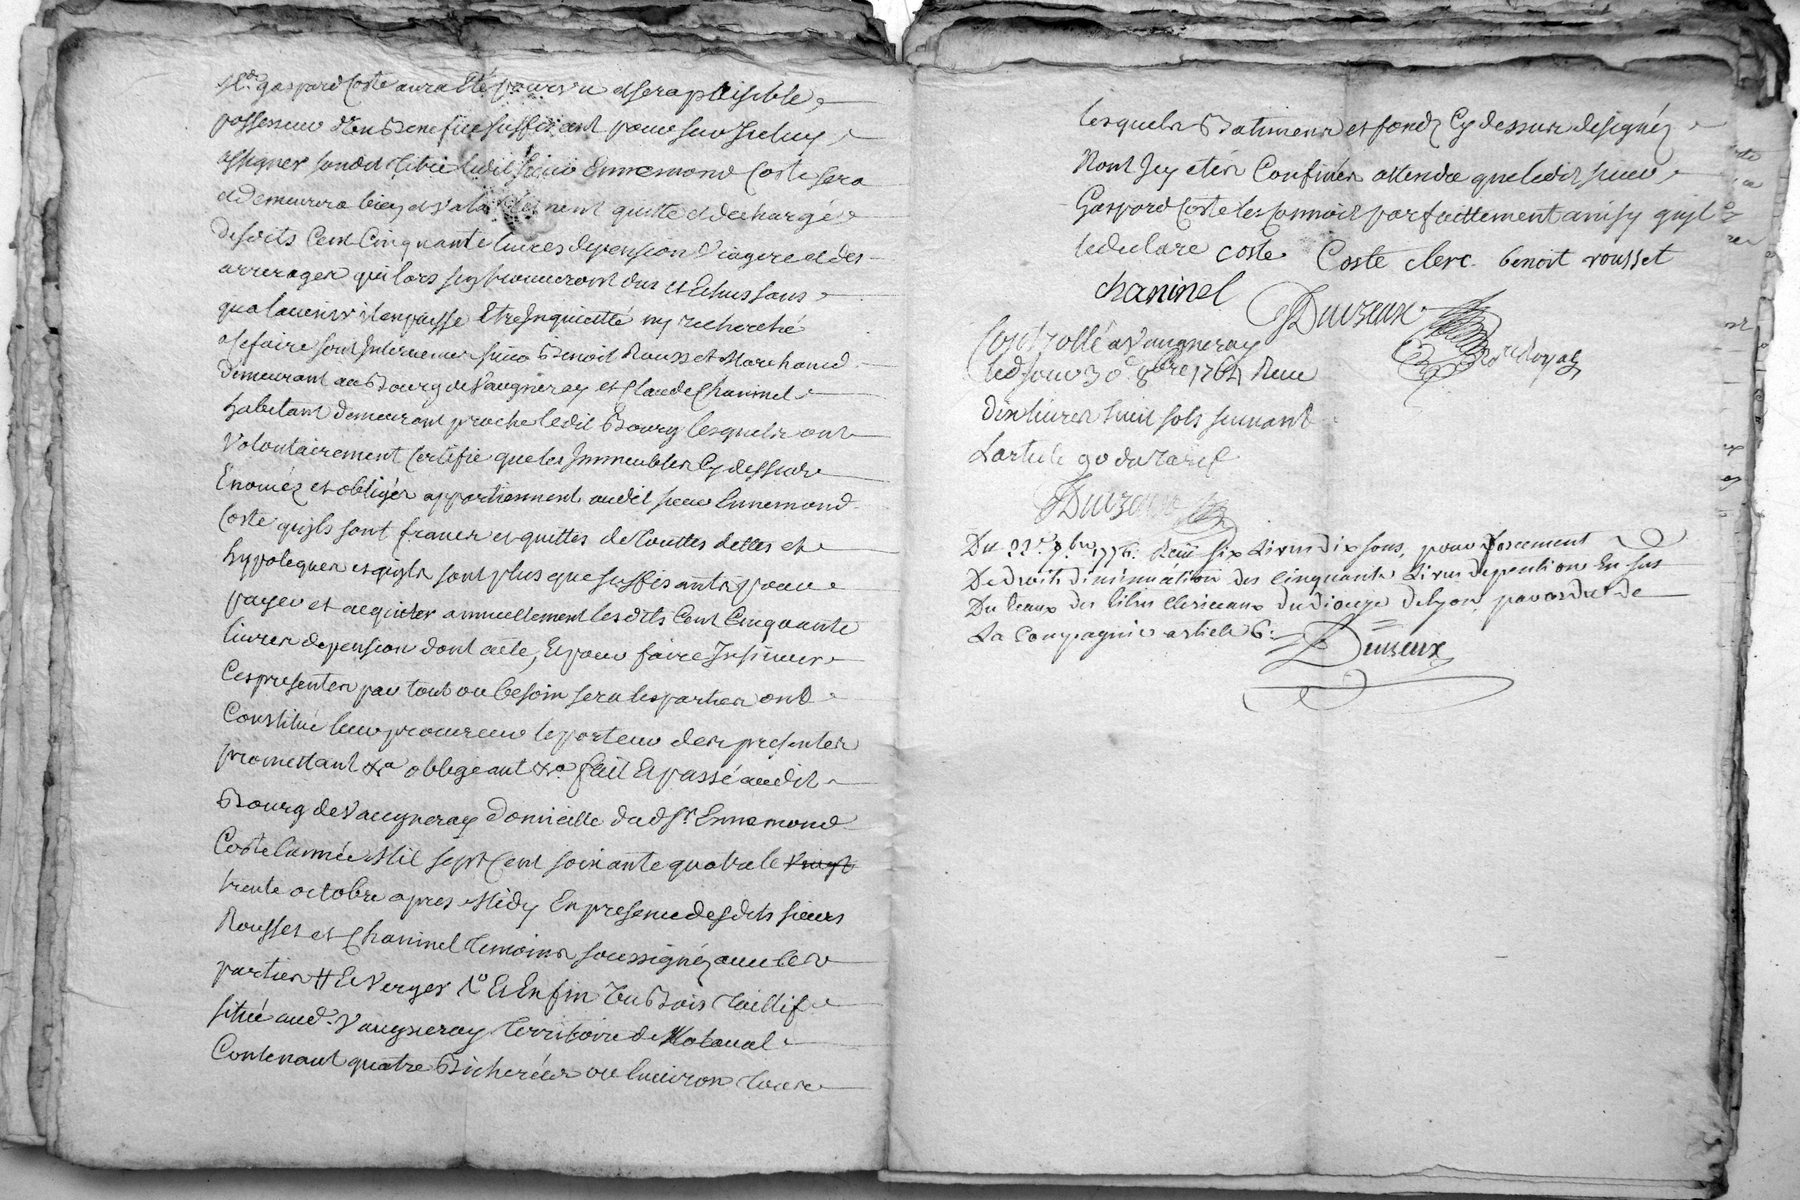 Sr. gaspard Coste aura Eté pourvu et sera paisible
possesseur d'Un Benefice suffisant pour sur Iceluy
assigner sondit titre ledit sieur Ennemond Coste sera
et demeurera bien et valablement quitte et dechargé
desdits Cent Cinquante livres de pension Viagere et des
arrerages qui lors s'en trouveront dus et Echus sans
qua lavenir il en puisse Etre Inquietté ny recherché
a ce faire sont Intervenus sieur Benoit Rousset Marchand
demeurant au Bourg de Vaugneray et Claude Chaninel
habitant demeurant proche ledit Bourg lesquels ont
Volontairement Certifié que les Immeubles Cy dessus
Enoncéz et obligés appartiennent audit sieur Ennemond
Coste quils sont francs et quittes de Touttes dettes et
hypoteques et quils sont plus que suffisants pour
payer et acquitter annuellement lesdits Cent Cinquante
livres de pension dont acte, Et pour faire Insinuer
Ces presentes par tout ou besoin sera les parties ont
Constitué leur procureur le porteur des presentes
promettant &a obligeant &a fait Et passé audit
Bourg de Vaugneray domicille dud. Sr. Ennemond
Coste lannée Mil sept Cent soixante quatre le vingt
trente octobre apres Midy En presence desdits sieurs
Rousset et Chaninel Temoins soussignéz avec les
parties # Le Verger &o Et Enfin Un Bois Taillif
situé aud. Vaugneray Territoire de
Contenant quatre Bicherées ou Environ Tous
lesquels Batimens et fondz Cy dessus designéz
Nont Icy etés Confinés attendu que ledit sieur
Gaspard Coste les Connoit parfaittement ainsy quil
le declare coste Coste clerc benoit rousset
chaninel Duizeux Nore Royal
Controllé a Vaugneray
led. Jour 30e 8bre 1764 Reçu
dix livres huit sols suivant
Larticle 90 du Tarif
Duizeux
Du 22e 7bre 1776. Reçu six Livres dix sous, pour forcement
De droits dinsinuation des cinquante Livres de pention En sus
Du Teaux des titres Clericaux du diocese de Lyon, par ordre de
La Compagnie article 6.
Duizeux